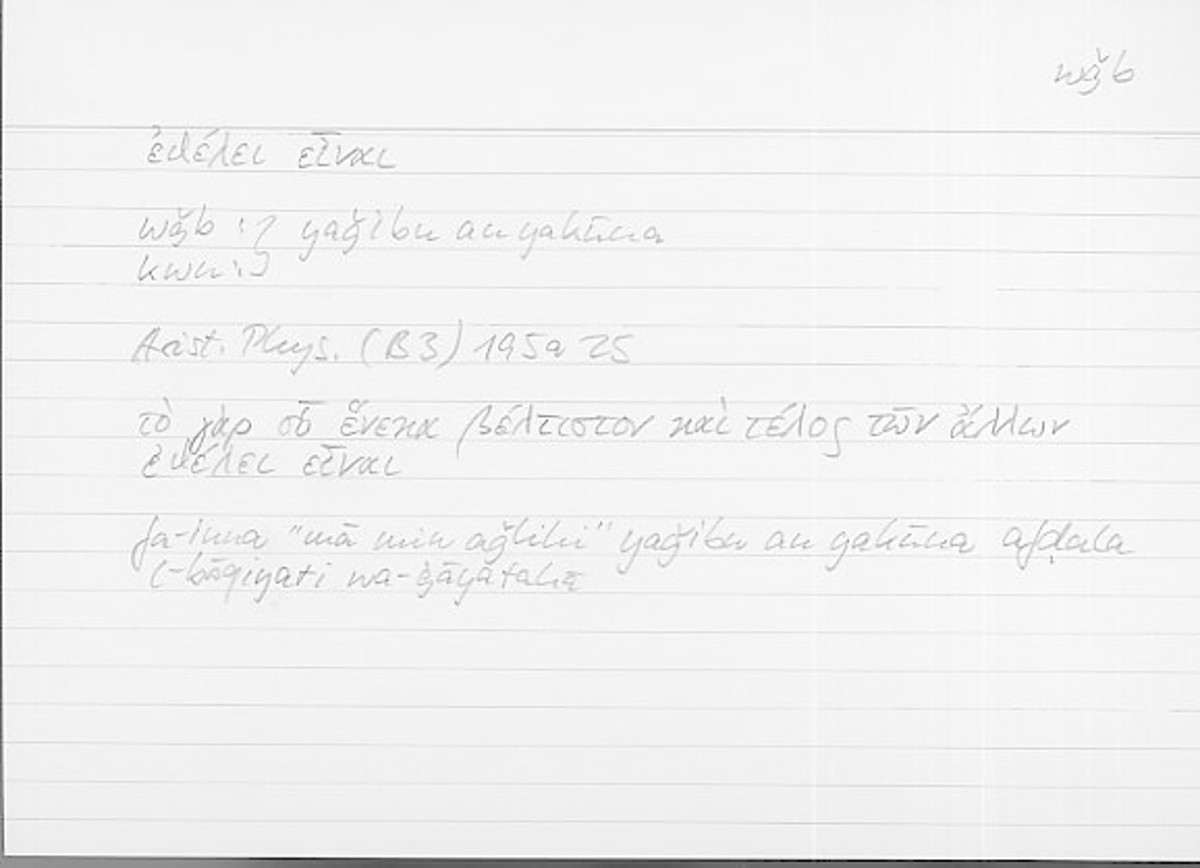 wǧb
ἐθέλει εἶναι
wǧb :1 yaǧibu an yakūna
kwn :2
Arist. Phys. (B3) 195a 25
τὸ γὰρ οὗ ἕνεκα βέλτιστον καὶ τέλος τῶν ἄλλων
ἐθέλει εἶναι
fa-inna "mā min aǧlihi" yaǧibu an yakūna afḍala
l-bāqiyati wa-ġāyatahā